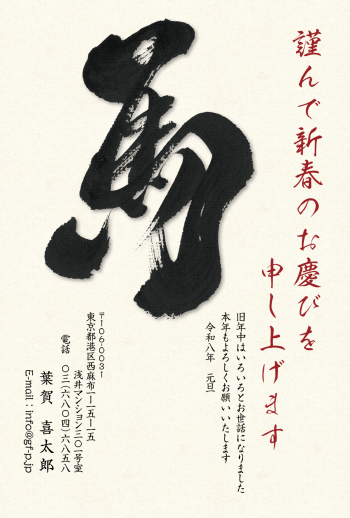 謹んで新春のお慶びを
申し上げます
馬
旧年中はいろいろとお世話になりました
本年もよろしくお願いいたします
令和八年　元旦
〒106-0031
東京都港区西麻布一ー一五ー一五
浅井マンション三〇一号室
電話　〇三(六八〇四)六八五八
葉賀　喜太郎
E-mail：info@gf-p.jp